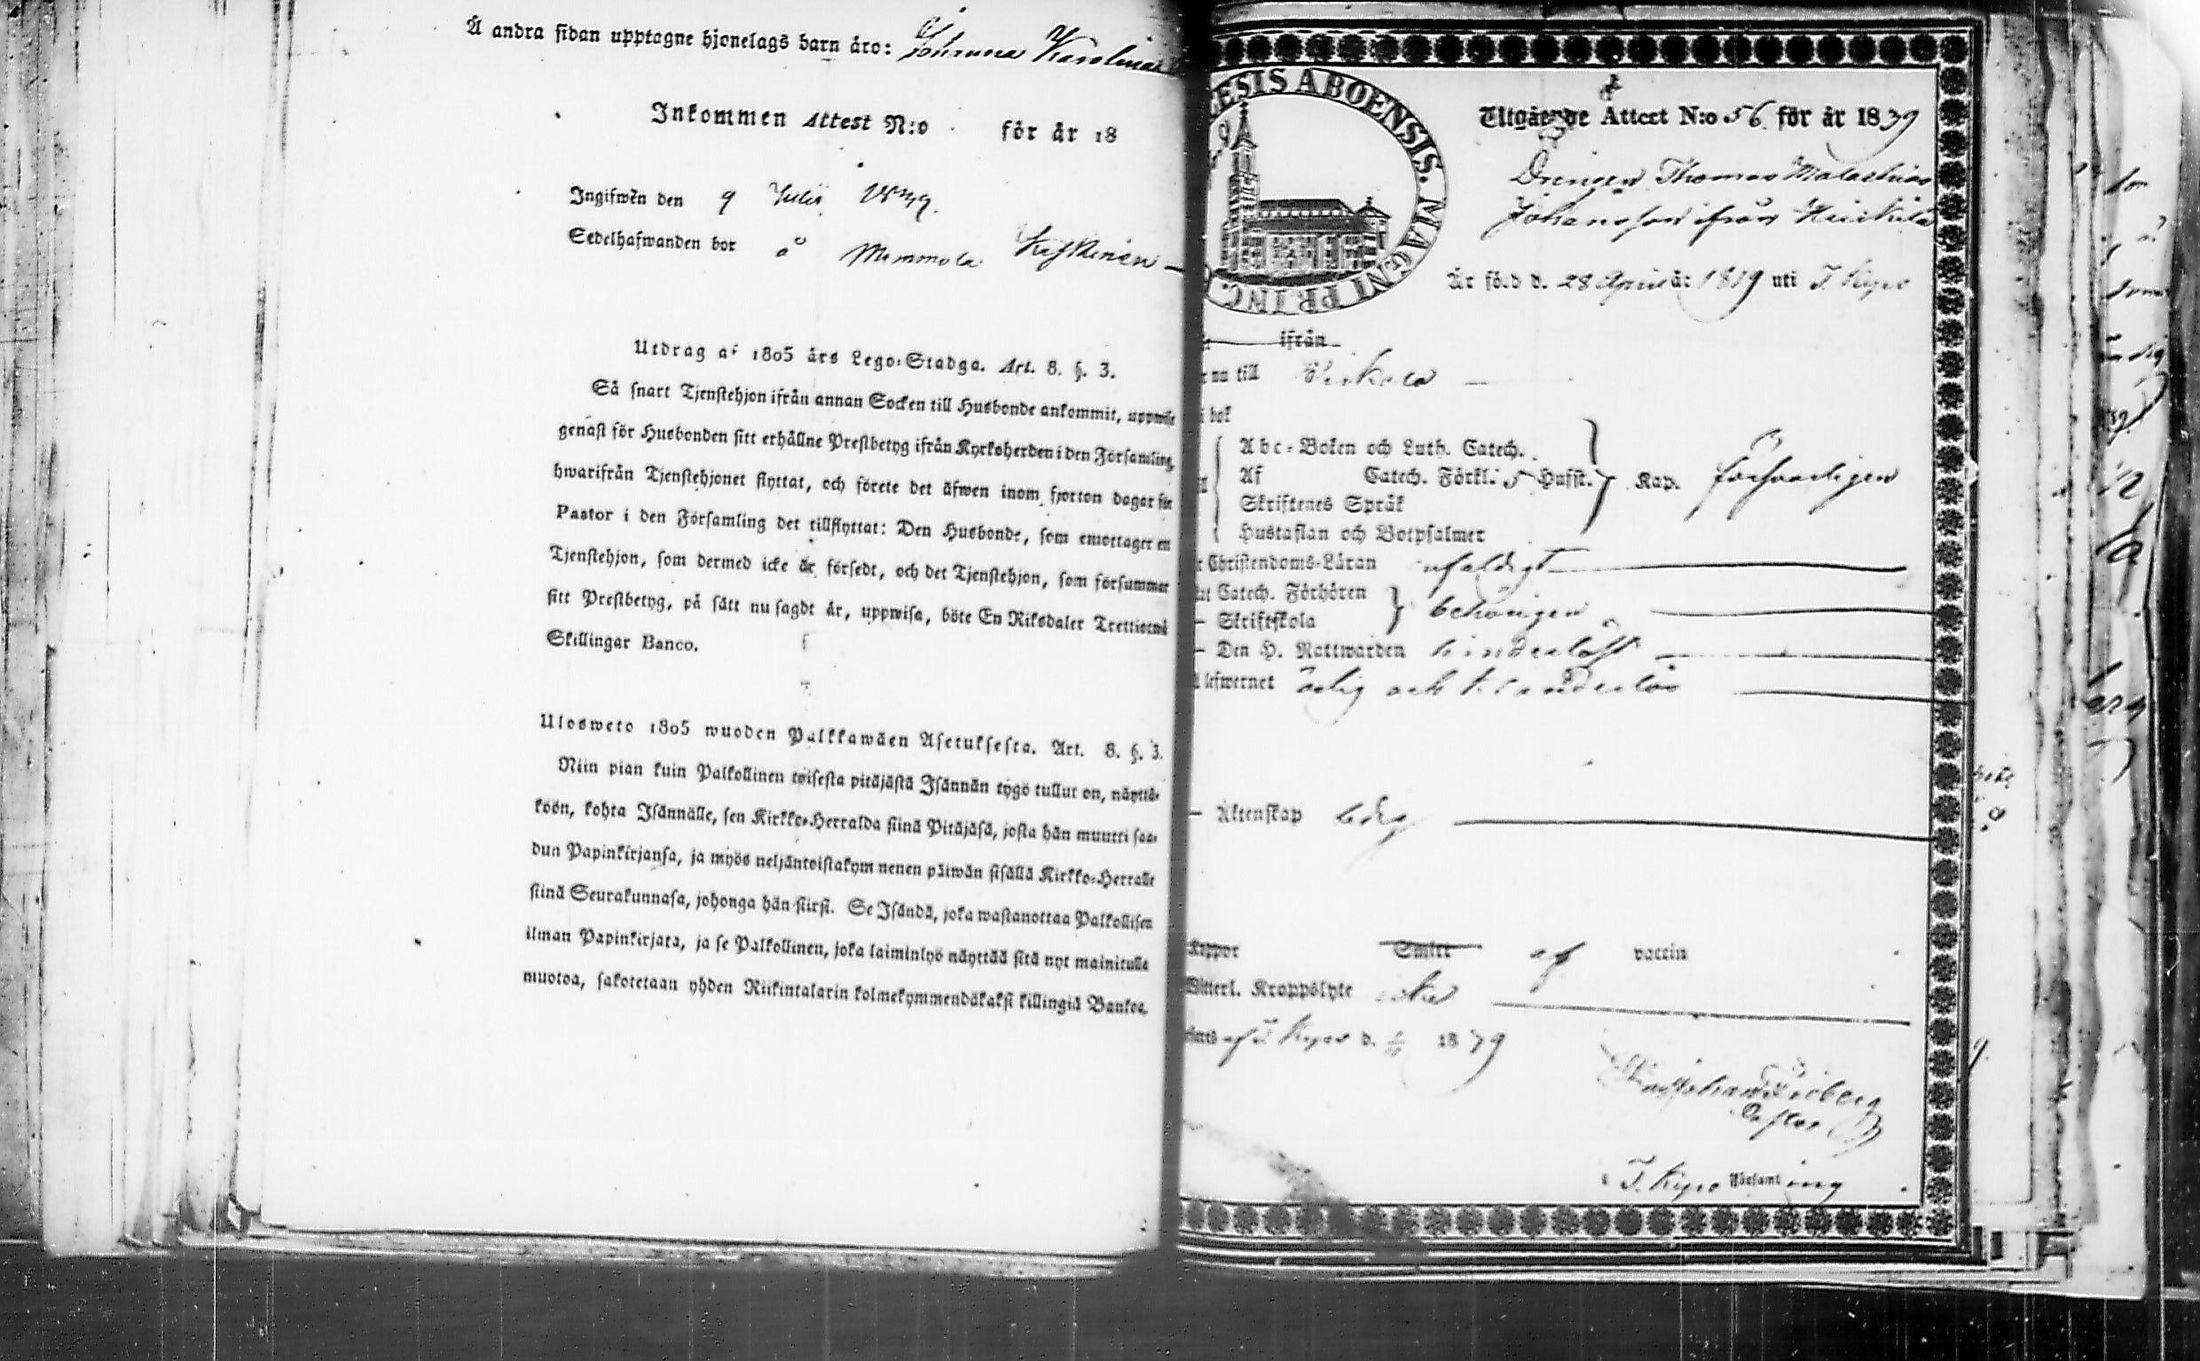 Å andra sidan upptagne hjonelags barn äro: Johanna Karolina
Inkommen Attest N:o för år 18
Ingifwen den 9 Julii 1839.
Sedelhafwanden bor å Mommola
Utdrag af 1805 års Lego-Stadga. Art. 8. §. 3.
Så snart Tjenstehjon ifrån annan Socken till Husbonde ankommit, uppwise
genast för Husbonden sitt erhållne Prestbetyg ifrån Kyrkoherden i den Församling,
hwarifrån Tjenstehjonet flyttat, och förete det äfwen inom fjorton dagar för
Pastor i den Församling det tillflyttat: Den Husbonde, som emottager en
Tjenstehjon, som dermed icke är försedt, och det Tjenstehjon, som försummar
sitt Prestbetyg, på sätt nu sagdt är, uppwisa, böte En Riksdaler Trettiotwå
Skillingar Banco.
Ulosweto 1805 wuoden Palkkawäen Asetuksesta. Art. 8. §. 3.
Niin pian kuin Palkollinen toisesta pitäjästä Isännän tygö tullut on, näyttä-
köön, kohta Isännälle, sen Kirkko-Herralda siinä Pitäjäsä, josta hän muutti saa-
dun Papinkirjansa, ja myös neljäntoistakymmenen päiwän sisällä Kirkko-Herralle
siinä Seurakunnasa, johonga hän siirsi. Se Isändä, joka wastanottaa Palkollisen
ilman Papinkirjata, ja se Palkollinen, joka laiminlyö näyttää sitä nyt mainitulla
muotoa, sakotetaan yhden Riikintalarin kolmekymmendäkaksi killingiä Bankos.
ECESIS ABOENSIS. MAGNI PRINC.
Utgående Attest N:o 56 för år 1839
Drengen Thomas Malachias
Johansson ifrån
Är född d. 28 April år 1819 uti T. Kyro
ifrån
nu till
i bok
Abc-Boken och Luth. Catech.
Af Catech. Förkl. 5 Husst. Kap. försvarligen
Skriftenes Språk
Hustaflan och Botpsalmer
Christendoms-Läran
Catech. Förhören behörigen
– Skriftskola
– Den H. Nattwarden hinderlöst
lefwernet ärlig och klanderlös
– Äktenskap ledig
Koppor Smitt af vaccin
Witterl. Kroppslyte icke
af T. Kyro d. 1839
Pastor
i T. Kyro Församling